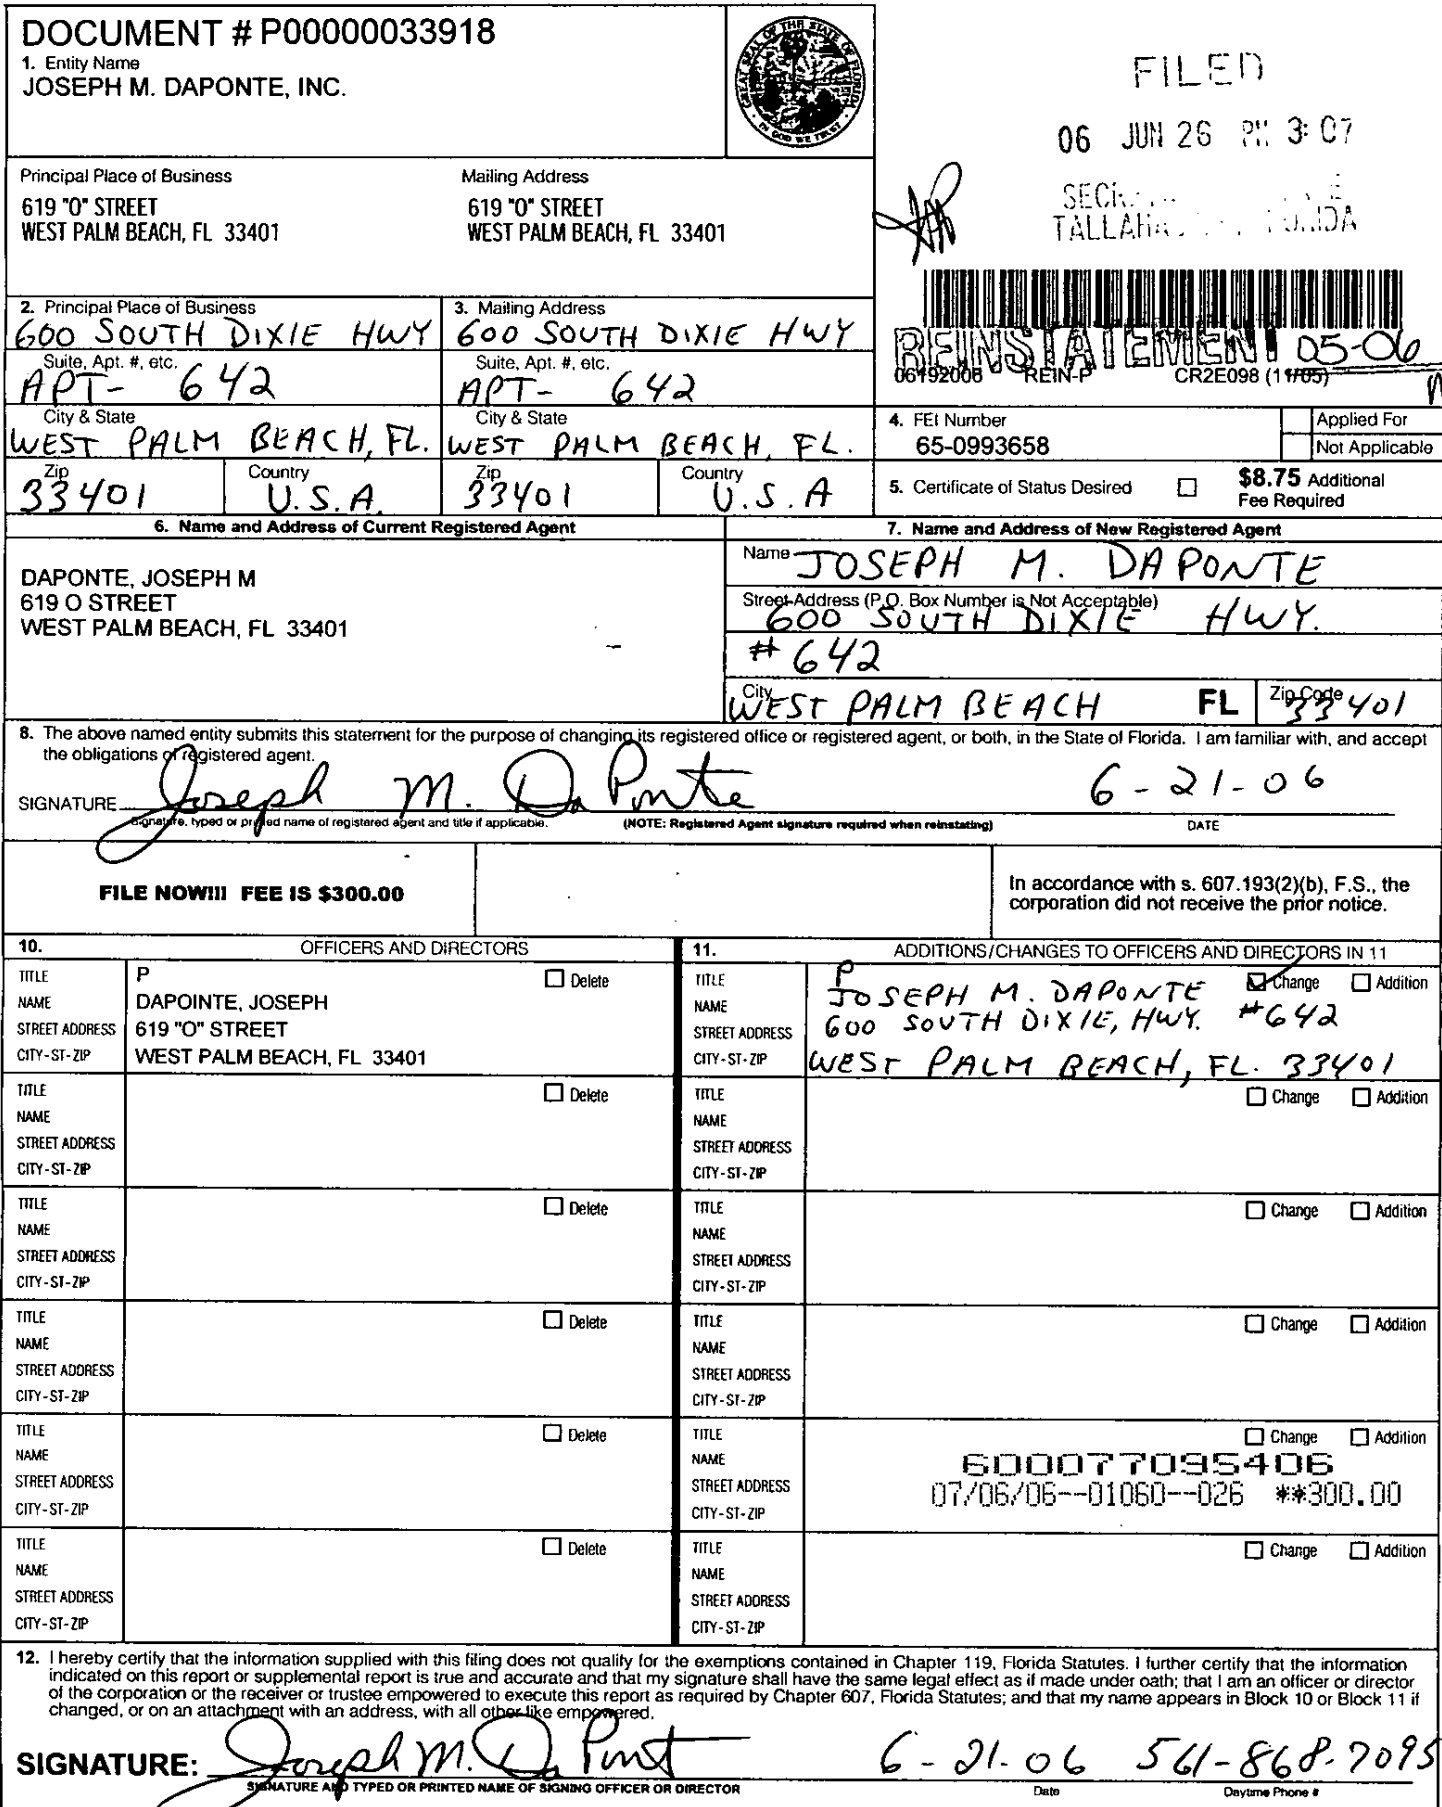 DOCUMENT # P00000033918
1. Entity Name
JOSEPH M. DAPONTE, INC.
GREAT SEAL OF THE STATE OF FLORIDA
IN GOD WE TRUST
FILED
06 JUN 26 PM 3:07
TALLAHA
Principal Place of Business
619 "O" STREET
WEST PALM BEACH, FL 33401
Mailing Address
619 "O" STREET
WEST PALM BEACH, FL 33401
REINSTATEMENT 05-06
06192006 REIN-P CR2E098 (11/05)
2. Principal Place of Business
600 SOUTH DIXIE HWY
Suite, Apt. #, etc.
APT- 642
City & State
WEST PALM BEACH, FL.
Zip
33401
Country
U.S.A.
3. Mailing Address
600 SOUTH DIXIE HWY
Suite, Apt. #, etc.
APT- 642
City & State
WEST PALM BEACH, FL.
Zip
33401
Country
U.S.A
4. FEI Number
65-0993658
Applied For
Not Applicable
5. Certificate of Status Desired
$8.75 Additional
Fee Required
6. Name and Address of Current Registered Agent
DAPONTE, JOSEPH M
619 O STREET
WEST PALM BEACH, FL 33401
7. Name and Address of New Registered Agent
Name
JOSEPH M. DAPONTE
Street Address (P.O. Box Number is Not Acceptable)
600 SOUTH DIXIE HWY.
# 642
City
WEST PALM BEACH FL
Zip Code
33401
8. The above named entity submits this statement for the purpose of changing its registered office or registered agent, or both, in the State of Florida. I am familiar with, and accept
the obligations of registered agent.
SIGNATURE Joseph M. DaPonte 6-21-06
Signature, typed or printed name of registered agent and title if applicable. (NOTE: Registered Agent signature required when reinstating) DATE
FILE NOW!!! FEE IS $300.00
In accordance with s. 607.193(2)(b), F.S., the
corporation did not receive the prior notice.
10. OFFICERS AND DIRECTORS
TITLE P Delete
NAME DAPOINTE, JOSEPH
STREET ADDRESS 619 "O" STREET
CITY-ST-ZIP WEST PALM BEACH, FL 33401
TITLE Delete
NAME
STREET ADDRESS
CITY-ST-ZIP
TITLE Delete
NAME
STREET ADDRESS
CITY-ST-ZIP
TITLE Delete
NAME
STREET ADDRESS
CITY-ST-ZIP
TITLE Delete
NAME
STREET ADDRESS
CITY-ST-ZIP
TITLE Delete
NAME
STREET ADDRESS
CITY-ST-ZIP
11. ADDITIONS/CHANGES TO OFFICERS AND DIRECTORS IN 11
TITLE P Change Addition
NAME JOSEPH M. DAPONTE
STREET ADDRESS 600 SOUTH DIXIE, HWY. #642
CITY-ST-ZIP WEST PALM BEACH, FL. 33401
TITLE Change Addition
NAME
STREET ADDRESS
CITY-ST-ZIP
TITLE Change Addition
NAME
STREET ADDRESS
CITY-ST-ZIP
TITLE Change Addition
NAME
STREET ADDRESS
CITY-ST-ZIP
TITLE Change Addition
NAME 600077095406
STREET ADDRESS 07/06/06--01060--026 **300.00
CITY-ST-ZIP
TITLE Change Addition
NAME
STREET ADDRESS
CITY-ST-ZIP
12. I hereby certify that the information supplied with this filing does not qualify for the exemptions contained in Chapter 119, Florida Statutes. I further certify that the information
indicated on this report or supplemental report is true and accurate and that my signature shall have the same legal effect as if made under oath; that I am an officer or director
of the corporation or the receiver or trustee empowered to execute this report as required by Chapter 607, Florida Statutes; and that my name appears in Block 10 or Block 11 if
changed, or on an attachment with an address, with all other like empowered.
SIGNATURE: Joseph M. DaPonte 6-21-06 561-868-7095
SIGNATURE AND TYPED OR PRINTED NAME OF SIGNING OFFICER OR DIRECTOR Date Daytime Phone #